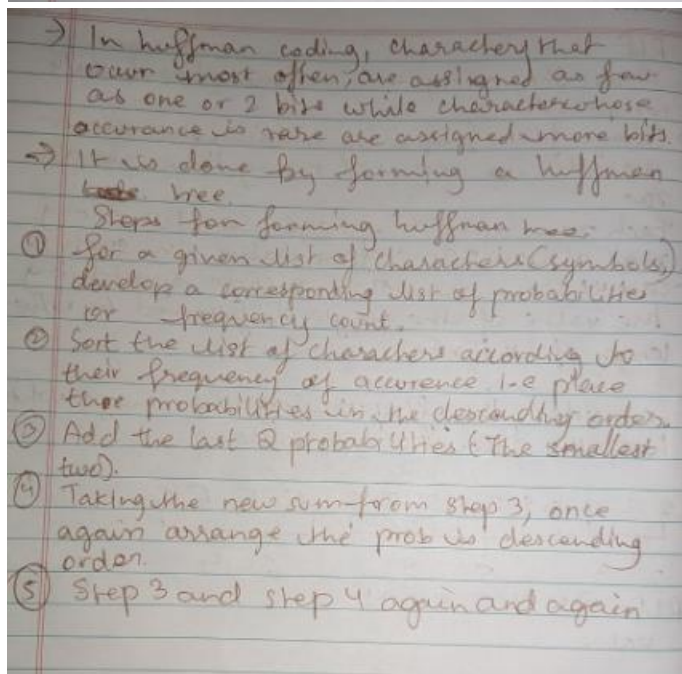 → In huffman coding, characters that
occur most often, are assigned as few
as one or 2 bits while character whose
accurance is rare are assigned more bits.
⇒ It is done by forming a huffman
tree.
Steps for forming huffman tree:
① for a given list of characters (symbols,)
develop a corresponding list of probabilities
or frequency count.
② Sort the list of characters according to
their frequency of accurence i-e place
thoe probabilities in the descending order.
③ Add the last 2 probabilities (The smallest
two).
④ Taking the new sum from step 3, once
again arrange the prob is descending
order.
⑤ Step 3 and step 4 again and again